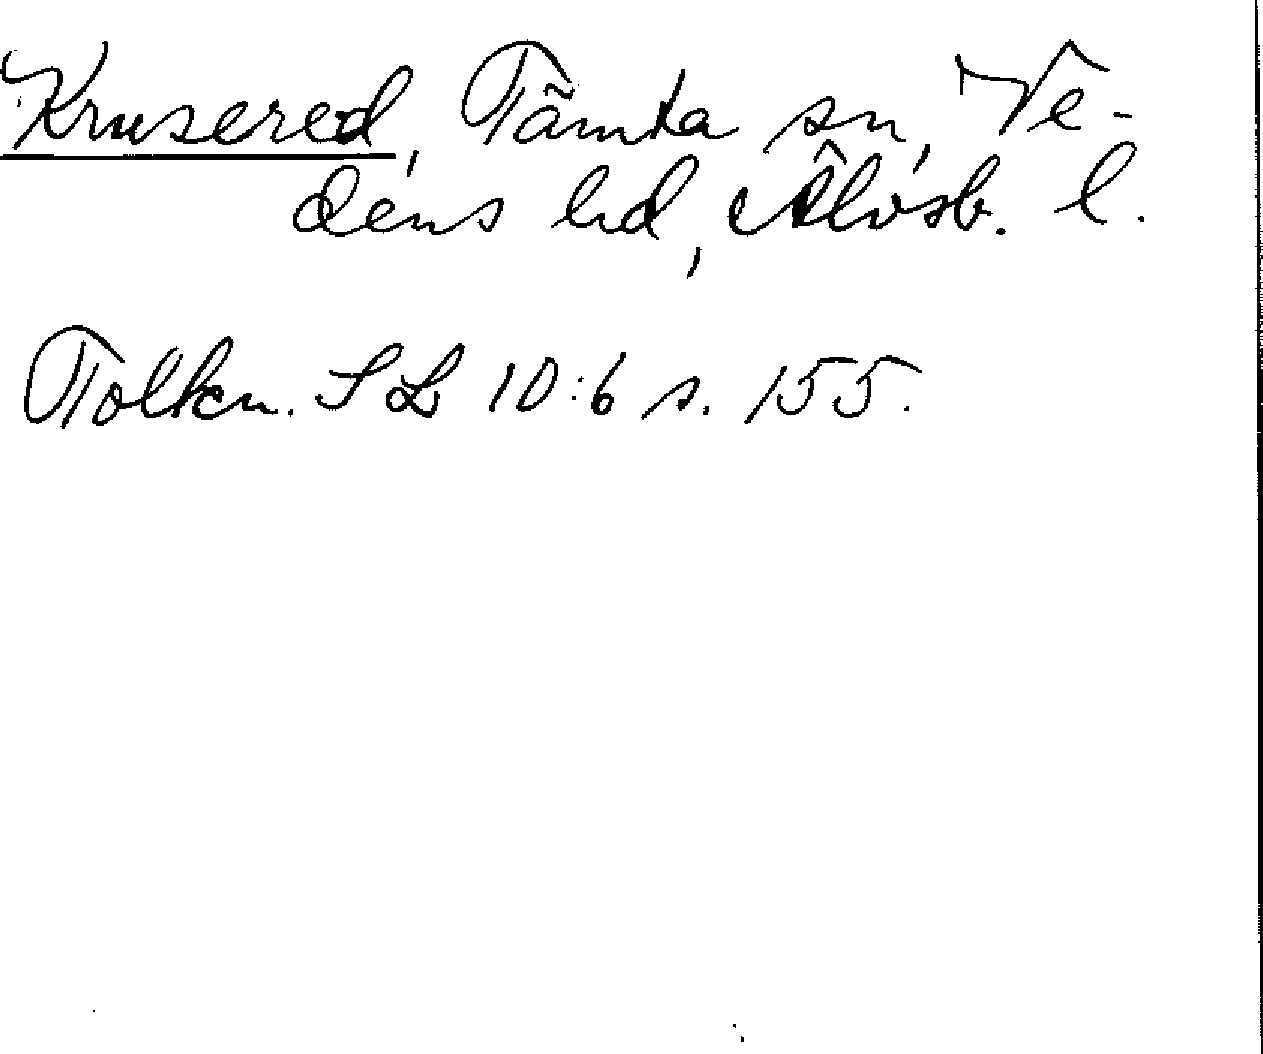 Krusered, Tämta sn, Ve-
dens hd, Älvsb. l.
Tolkn. SL 10:6 s. 155.